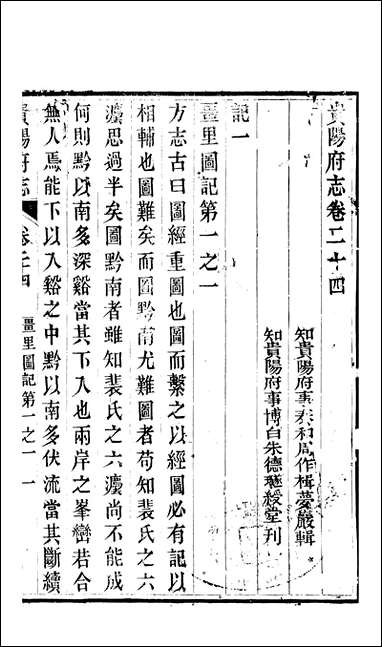 貴陽府志卷二十四
知貴陽府事泰和周作楫夢巖輯
知貴陽府事博白朱德璲綬堂刊
記一
畺里圖記第一之一
方志古曰圖經重圖也圖而繫之以經圖必有記以
相輔也圖難矣而圖黔南尤難圖者苟知裴氏之六
灋思過半矣圖黔南者雖知裴氏之六灋尚不能成
何則黔以南多深谿當其下入也兩岸之峯巒若合
無人焉能下以入谿之中黔以南多伏流當其斷續
貴陽府志
卷二十四
畺里圖記第一之一
一